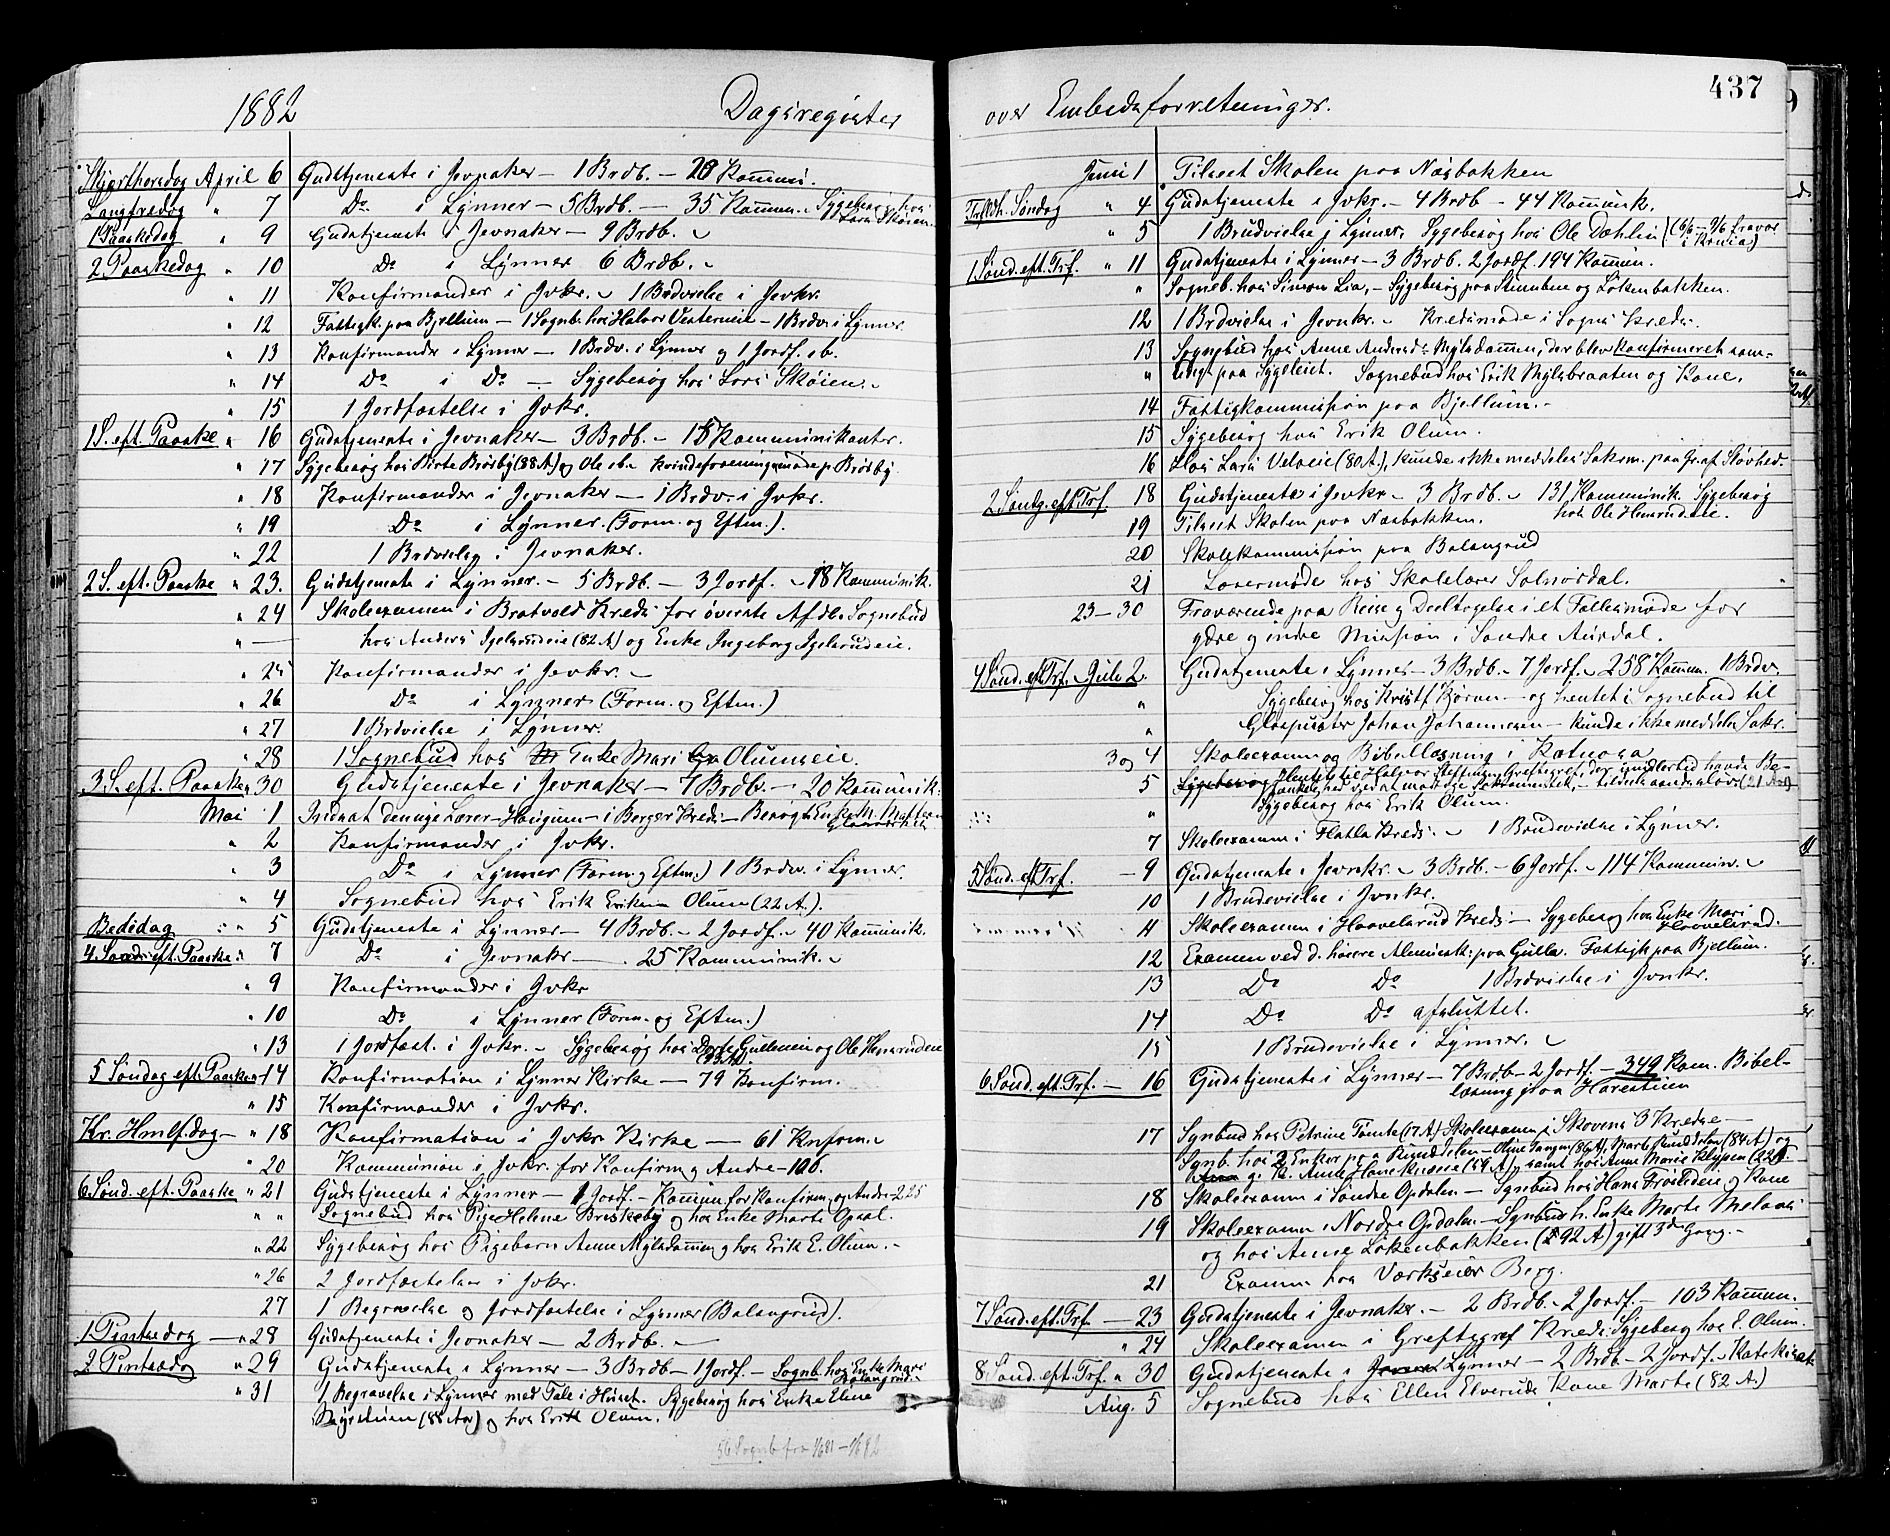 1882 Dagsregister
Skjærthorsdag April 6 Gudstjeneste i Jevnaker – 1 Brdb. – 20 Kommu.
Langfredag " 7 Do i Lynner – 5 Brdb. – 35 Kommun. Sygebesøg hos Lars Skøien.
1 Paaskedag " 9 Gudstjeneste i Jevnaker – 9 Brdb.
2 Paaskedag " 10 Do i Lynner 6 Brdb.
" 11 Konfirmander i Jvkr. – 1 Brdvielse i Jevkr.
" 12 Fattigk. paa Bjellum – 1 Sognb. hos Halvor Vesterneie – 1 Brdv. i Lynner
" 13 Konfirmander i Lynner – 1 Brdv. i Lynner og 1 Jordf. sb.
" 14 Do i Do – Sygebesøg hos Lars Skøien.
" 15 1 Jordfæstelse i Jvkr.
1 S. eft. Paaske " 16 Gudstjeneste i Jevnaker – 3 Brdb. – 15 Kommunikanter.
" 17 Sygebesøg hos Birte Brørby (88 A) og Ole sb. Kvindeforeningsmøde p. Brørby
" 18 Konfirmander i Jevnaker – 1 Brdv. i Jvkr.
" 19 Do i Lynner (Form. og Eftm.).
" 22 1 Brdvielse i Jevnaker.
2 S. eft. Paaske " 23. Gudstjeneste i Lynner. – 5 Brdb. – 3 Jordf. – 18 Kommunik.
" 24 Skoleexamen i Bratvold Kreds for øverste Afdl. Sognebud
" — hos Anders Igelsrudeie (82 A) og Enke Ingeborg Igelsrudeie.
" 25 Konfirmander i Jevkr.
" 26 Do i Lynner (Form. og Eftm.)
" 27 1 Brdvielse i Lynner.
" 28 1 Sognebud hos Enke Mari Olumseie.
3 S. eft. Paaske " 30 Gudstjeneste i Jevnaker – 7 Brdb. – 20 Kommunik.
Mai 1 Indsat den nye Lærer Haugum – i Berger Kreds – Besøgt Enkefr.
" 2 Konfirmander i Jvkr.
" 3 Do i Lynner (Form. og Eftm.) 1 Brdv. i Lynner.
" 4 Sognebud hos Erik Eriksen Olum (22 A.).
Bededag " 5 Gudstjeneste i Lynner – 4 Brdb. – 2 Jordf. – 40 Kommunik.
4. Sønd. eft. Paaske " 7 Do i Jevnaker – 25 Kommunik.
" 9 Konfirmander i Jvkr
" 10 Do i Lynner (Form. og Eftm.)
" 13 1 Jordfæst. i Jvkr. – Sygebesøg hos Dorte Gulleneie og Ole Hensrudeie
5 Søndag eft. Paaske " 14 Konfirmation i Lynner Kirke – 79 Konfirm.
" 15 Konfirmander i Jvkr.
Kr. Hmlf. dag – " 18 Konfirmation i Jvkr Kirke – 61 Knfirm.
" 20 Kommunion i Jvkr. for Konfirm. og Andre – 106.
6. Sønd. eft. Paaske " 21 Gudstjeneste i Lynner – 1 Jordf. – Kommun. for Konfirm. og Andre 225
" " Sognebud hos Pige Helene Briskeby og hos Enke Marte Opsal.
" 22 Sygebesøg hos Pigebarn Anne Mylsdammen og hos Erik E. Olum.
" 26 2 Jordfæstelser i Jvkr.
27 1 Begravelse og Jordfæstelse i Lynner (Balangrud).
1 Pintsedag – " 28 Gudstjeneste i Jevnaker – 2 Brdb.
2 Pintsedg " 29 Gudstjeneste i Lynner – 3 Brdb – 1 Jordf. – Sognb. hos Enke Mari Balangrud.
" 31 1 Begravelse i Lynner med Tale i Huset. Sygebesøg hos Enke Eline
(88 Aar) og hos Erik Olum.
56 Sognb fra 1/6 81 – 1/6 82
437
over Embedsforretninger.
Juni 1 Tilseet Skolen paa Næsbakken
Trfldh. Søndag " 4 Gudstjeneste i Jvkr. – 4 Brdb – 44 Kommunik.
" 5 1 Brudvielse i Lynner, Sygebesøg hos Ole Dæhlin (6/6 – 9/6 fravær.
1. Sønd. eft. Trf. " 11 Gudstjeneste i Lynner – 3 Brdb. 2 Jordf. 194 Kommun.
" Sogneb. hos Simon Lia, – Sygebesøg paa Stumbne og Løkenbakken.
12 1 Brdvielse i Jevnkr. – Kredsmøde i Sogns Kreds.
13 Sognebud hos Anne Andersd. Mylsdammen, der blev konfirmeret sam-
" tidigt paa Sygeleiet. Sognebud hos Erik Mylsbraaten og Kone.
14 Fattigkommission paa Bjellum.
15 Sygebesøg hos Erik Olum.
16 Hos Lars Velseie (80 A), kunde ikke meddeles Sakrm. paa Gr. af Sløvhed.
2 Søndg. eft. Trf. 18 Gudstjeneste i Jevkr – 3 Brdb. – 131 Kommunik. Sygebesøg hos Ole Hensrudeie.
19 Tilseet Skolen paa Næsbakken.
20 Skolekommission paa Balangrud
21 Lærermøde hos Skolelærer Solnørdal.
23 – 30 Fraværende paa Reise og Deeltagelse i et Fællesmøde for
ydre og indre Mission i Søndre Aurdal.
4 Sønd. eft. Trf. – Juli 2. Gudstjeneste i Lynner – 3 Brdb. – 7 Jordf. – 258 Kommun. 1 Brdv.
" Sygebesøg hos Kristf Bjøran – og hentet i Sognebud til
" Glaspuster Johan Johannesen – kunde ikke meddeles Sakr.
3 og 4 Skoleexamen og Bibellæsning i Katnosa
5 Sygebesøg Hentet til Halvor Steffensen Greftegref, der imidlertid havde
" Sygebesøg hos Erik Olum.
7 Skoleexamen i Flatla Kreds. – 1 Brudevielse i Lynner.
5 Sønd. eft. Trf. – 9 Gudstjeneste i Jevnkr. – 3 Brdb. – 6 Jordf. – 114 Kommun.
10 1 Brudevielse i Jvnkr.
11 Skoleexamen i Haavelsrud Kreds – Sygebesøg hos Enke Mari Haavelsrud.
12 Examen ved d. høiere Almueskl. paa Gulla. Fattigk. paa Bjellum.
13 Do Do 1 Brdvielse i Jvnkr.
14 Do Do afsluttet.
15 1 Brudevielse i Lynner.
6. Sønd. eft. Trf. – 16 Gudstjeneste i Lynner – 7 Brdb – 2 Jordf. – 349 Kom. Bibel-
læsning paa Harestuen
17 Sgnbud hos Petrine Tømte (17 A) Skoleexamen i Skovens 3 Kredse –
Sgnb. hos 2 Enker paa Ruudselen – Oline Tangen (86 A), Marte Ruudselen (84 A) og
samt hos Anne Marie Klypen (22
18 Skoleexamen i Søndre Opdalen – Sgnbud hos Hans Frøislideie og Kone
19 Skoleexamen i Nordre Opdalen – Sgnbud h. Enke Marte
og hos Anne Løkenbakken (92 A) gift 3de Gang. –
21 Examen hos Værkseier Berg.
7 Sønd. eft. Trf. – 23 Gudstjeneste i Jevnaker. – 2 Brdb. – 2 Jordf. – 103 Kommun.
" 24 Skoleexamen i Greftegref Kreds. Sygebesøg hos E. Olum.
8 Sønd. eft. Trf. " 30 Gudstjeneste i Lynner – 2 Brdb. – 2 Jordf. – Katekisat.
Aug. 5 Sognebud hos Ellen Elveruds Kone Marte (82 A.)